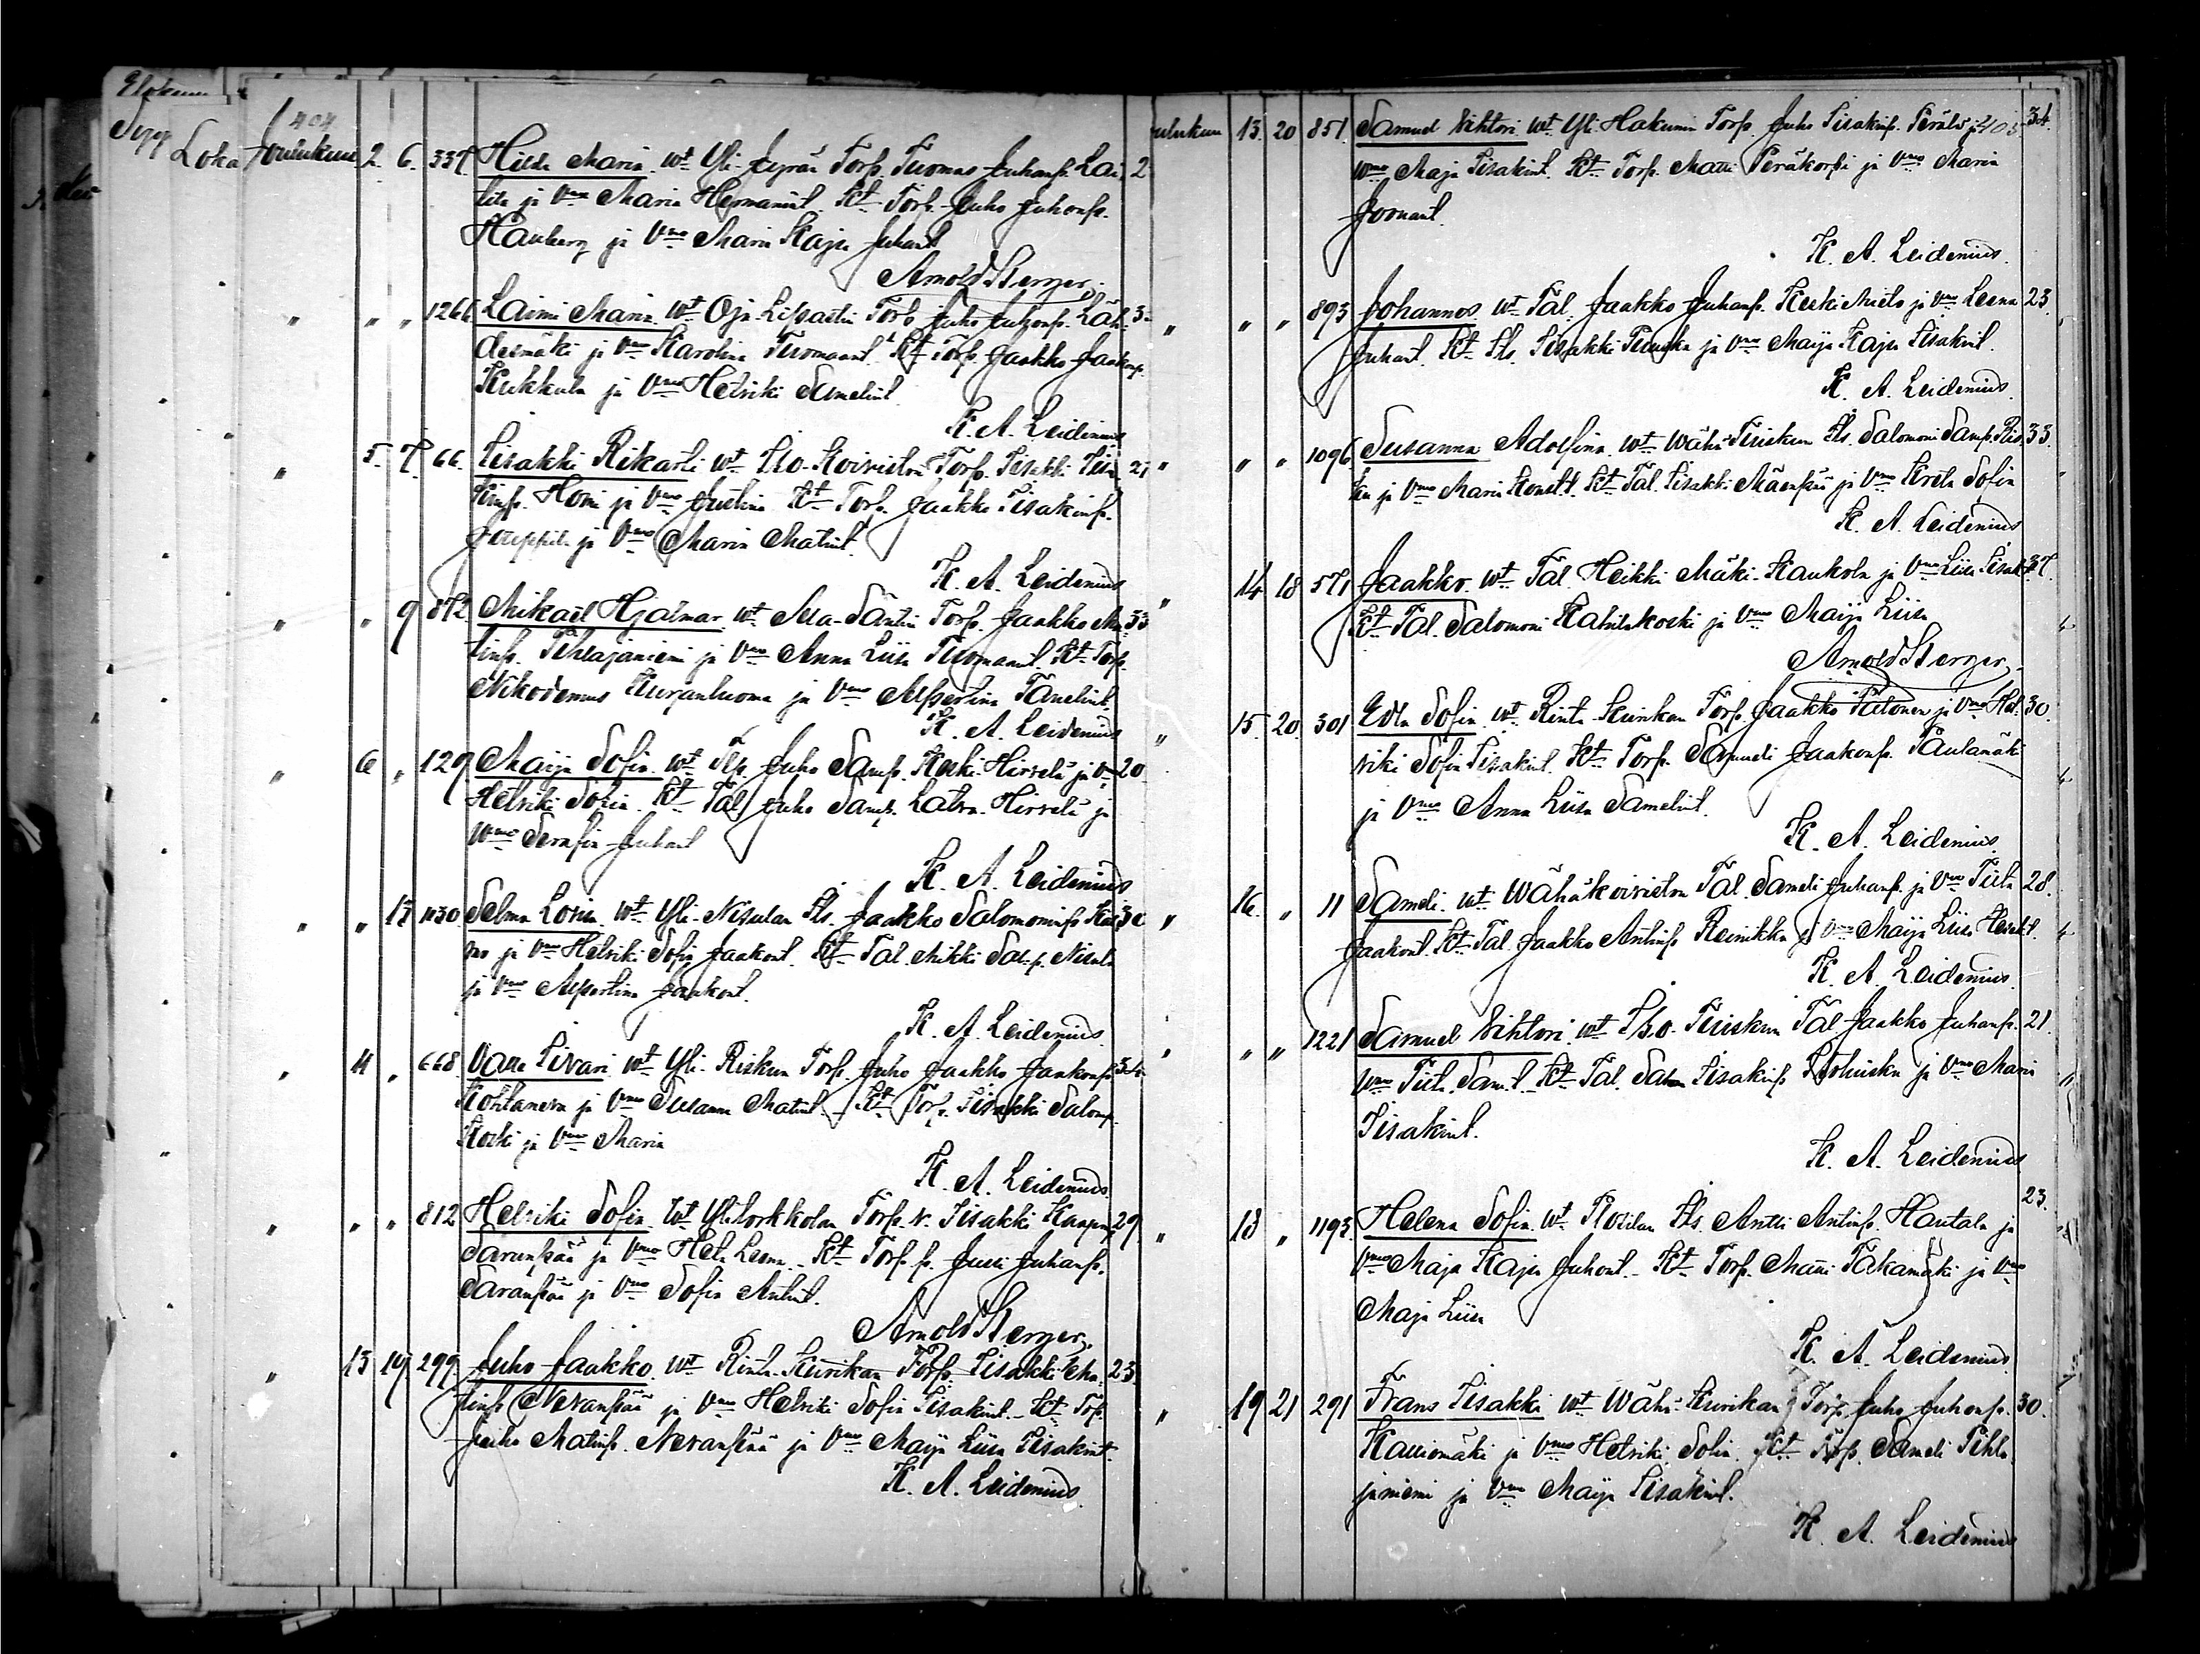 Elokuu
Syys
Loka
404
Joulukuu 2. 6. 337. Hilda Maria. wt Yli-Jyrän Torp. Tuomas Juhanp. Lai 2
tila ja Vmo Maria Hermanint. Kt Torp. Juho Juhonp.
Hanberg ja Vmo Maria Kajsa Juhant
Arnold Berger.
" " " 1266 Laimi Maria. wt Oja-Lippastin Torp Juho Juhonp. Läh 3
desmäki ja Vmo Karolina Tuomaant. Kt Torp. Jaakko Jaakonp.
Kukkula ja Vmo Hetriki Samelint.
K. A. Leidenius
" 5. 7. 66. Iisakki Rikarti wt Iso-Koiviston Torp. Iisakki Iisa 21
kinp. Homi ja Vmo Justina Kt Torp. Jaakko Iisakinp.
Jouppila ja Vmo Maria Matint.
K. A. Leidenius
" " 9 872 Mikael Hjalmar. wt Ala-Säntin Torp. Jaakko Ma 33
tinp. Pihlajaniemi ja Vmo Anna Liisa Tuomaant. Kt Torp.
Nikodemus Kurjenluoma ja Vmo Alpertina Tanelint.
K. A. Leidenius
" 6 " 129 Maija Sofia. wt Tlp. Juho Samp. Keski-Hirvelä ja Vmo 20
Hetriki Sofia. Kt Tal. Juho Samp. Latva-Hirvelä ja
Vmo Serafia Juhant
K. A. Leidenius
" " 13 1030 Selma Lovisa. wt Yli-Nisulan Its. Jaakko Salomoninp
ja Vmo Hetriki Sofia Jaakont. Kt Tal. Mikki Sal.p. Nisula
ja Vmo Alpertina Jaakont.
K. A. Leidenius
" 11 " 668. Vaara Iivari wt Yli-Riskun Torp. Juho Jaakko Jaakonp 34
Kohlaneva ja Vmo Susanna Matint. Kt Torp. Iisakki Salomp.
Koski ja Vmo Maria
K. A. Leidenius
" " " 812 Hetriki Sofia. wt Ylitorkkolan Torp. v. Iisakki Kaapp. 29
Saranpää ja Vmo Heta Leena. Kt Torp. p. Jussi Juhanp.
Saranpää ja Vmo Sofia Antint.
Arnold Berger,
" 13 19 299 Juho Jaakko. wt Rinta-Kurikan Torp. Iisakki Ma 23
tinp Nevanpää ja Vmo Hetriki Sofia Iisakint. Kt Torp.
Juho Matinp. Nevanpää ja Vmo Maija Liisa Iisakint.
K. A. Leidenius
Joulukuu 13. 20 851. Samuel Vihtori. wt Yli-Hakunin Torp. Juho Iisakinp. Perälä ja 405 34.
Vmo Maja Iisakint. Kt Torp. Matti Peräkorpi ja Vmo Maria
Joonant.
K. A. Leidenius.
" " " 893 Johannes. wt Tal. Jaakko Juhanp. Keski-Mieto ja Vmo Leena 23
Juhant. Kt Its. Iisakki Tuiska ja Vmo Maija Kajsa Iisakint.
K. A. Leidenius.
" " " 1096 Susanna Adolfina. wt Wähä-Tuiskun Its. Salomoni Samp. Ris 33.
ku ja Vmo Maria Konstt. Kt Tal. Iisakki Mäenpää ja Vmo Kreta Sofia
K. A. Leidenius
" 14 18 571 Jaakko. wt Tal. Heikki Mäki-Kaukola ja Vmo Liisa Iisakt 37.
Kt Tal. Salomoni Katilakoski ja Vmo Maija Liisa
Arnold Berger,
" 15. 20. 301 Edla Sofia. wt Rinta-Kurikan Torp. Jaakko Talonen ja Vmo Het 30.
riki Sofia Iisakint. Kt Torp. Sameli Jaakonp. Paulamäki
ja Vmo Anna Liisa Samelint.
K. A. Leidenius.
" 16. " 11 Sameli. wt Wähäkoiviston Tal. Sameli Juhanp. ja Vmo Tiita 28.
Jaakont. Kt Tal. Jaakko Antinp. Reinikka ja Vmo Maija Liisa Heikit.
K. A. Leidenius.
" " " 1221 Samuel Vihtori. wt Iso-Tuiskun Tal Jaakko Juhanp. 21.
Vmo Tiita Sam.t. Kt Tal. Iisakinp. ja Vmo Maria
Iisakint.
K. A. Leidenius
" 18 " 1193 Helena Sofia. wt Rozilan Its. Antti Antinp. Hautala ja 23.
Vmo Maja Kajsa Juhont. Kt Torp. Matti Takamäki ja Vmo
Maja Liisa
K. A. Leidenius
" 19 21 291 Frans Iisakki wt Wähä-Kurikan Torp. Juho Juhonp. 30.
Kalliomäki ja Vmo Hetriki Sofia. Kt Torp. Sameli Pihla
janiemi ja Vmo Maija Iisakint.
K. A. Leidenius